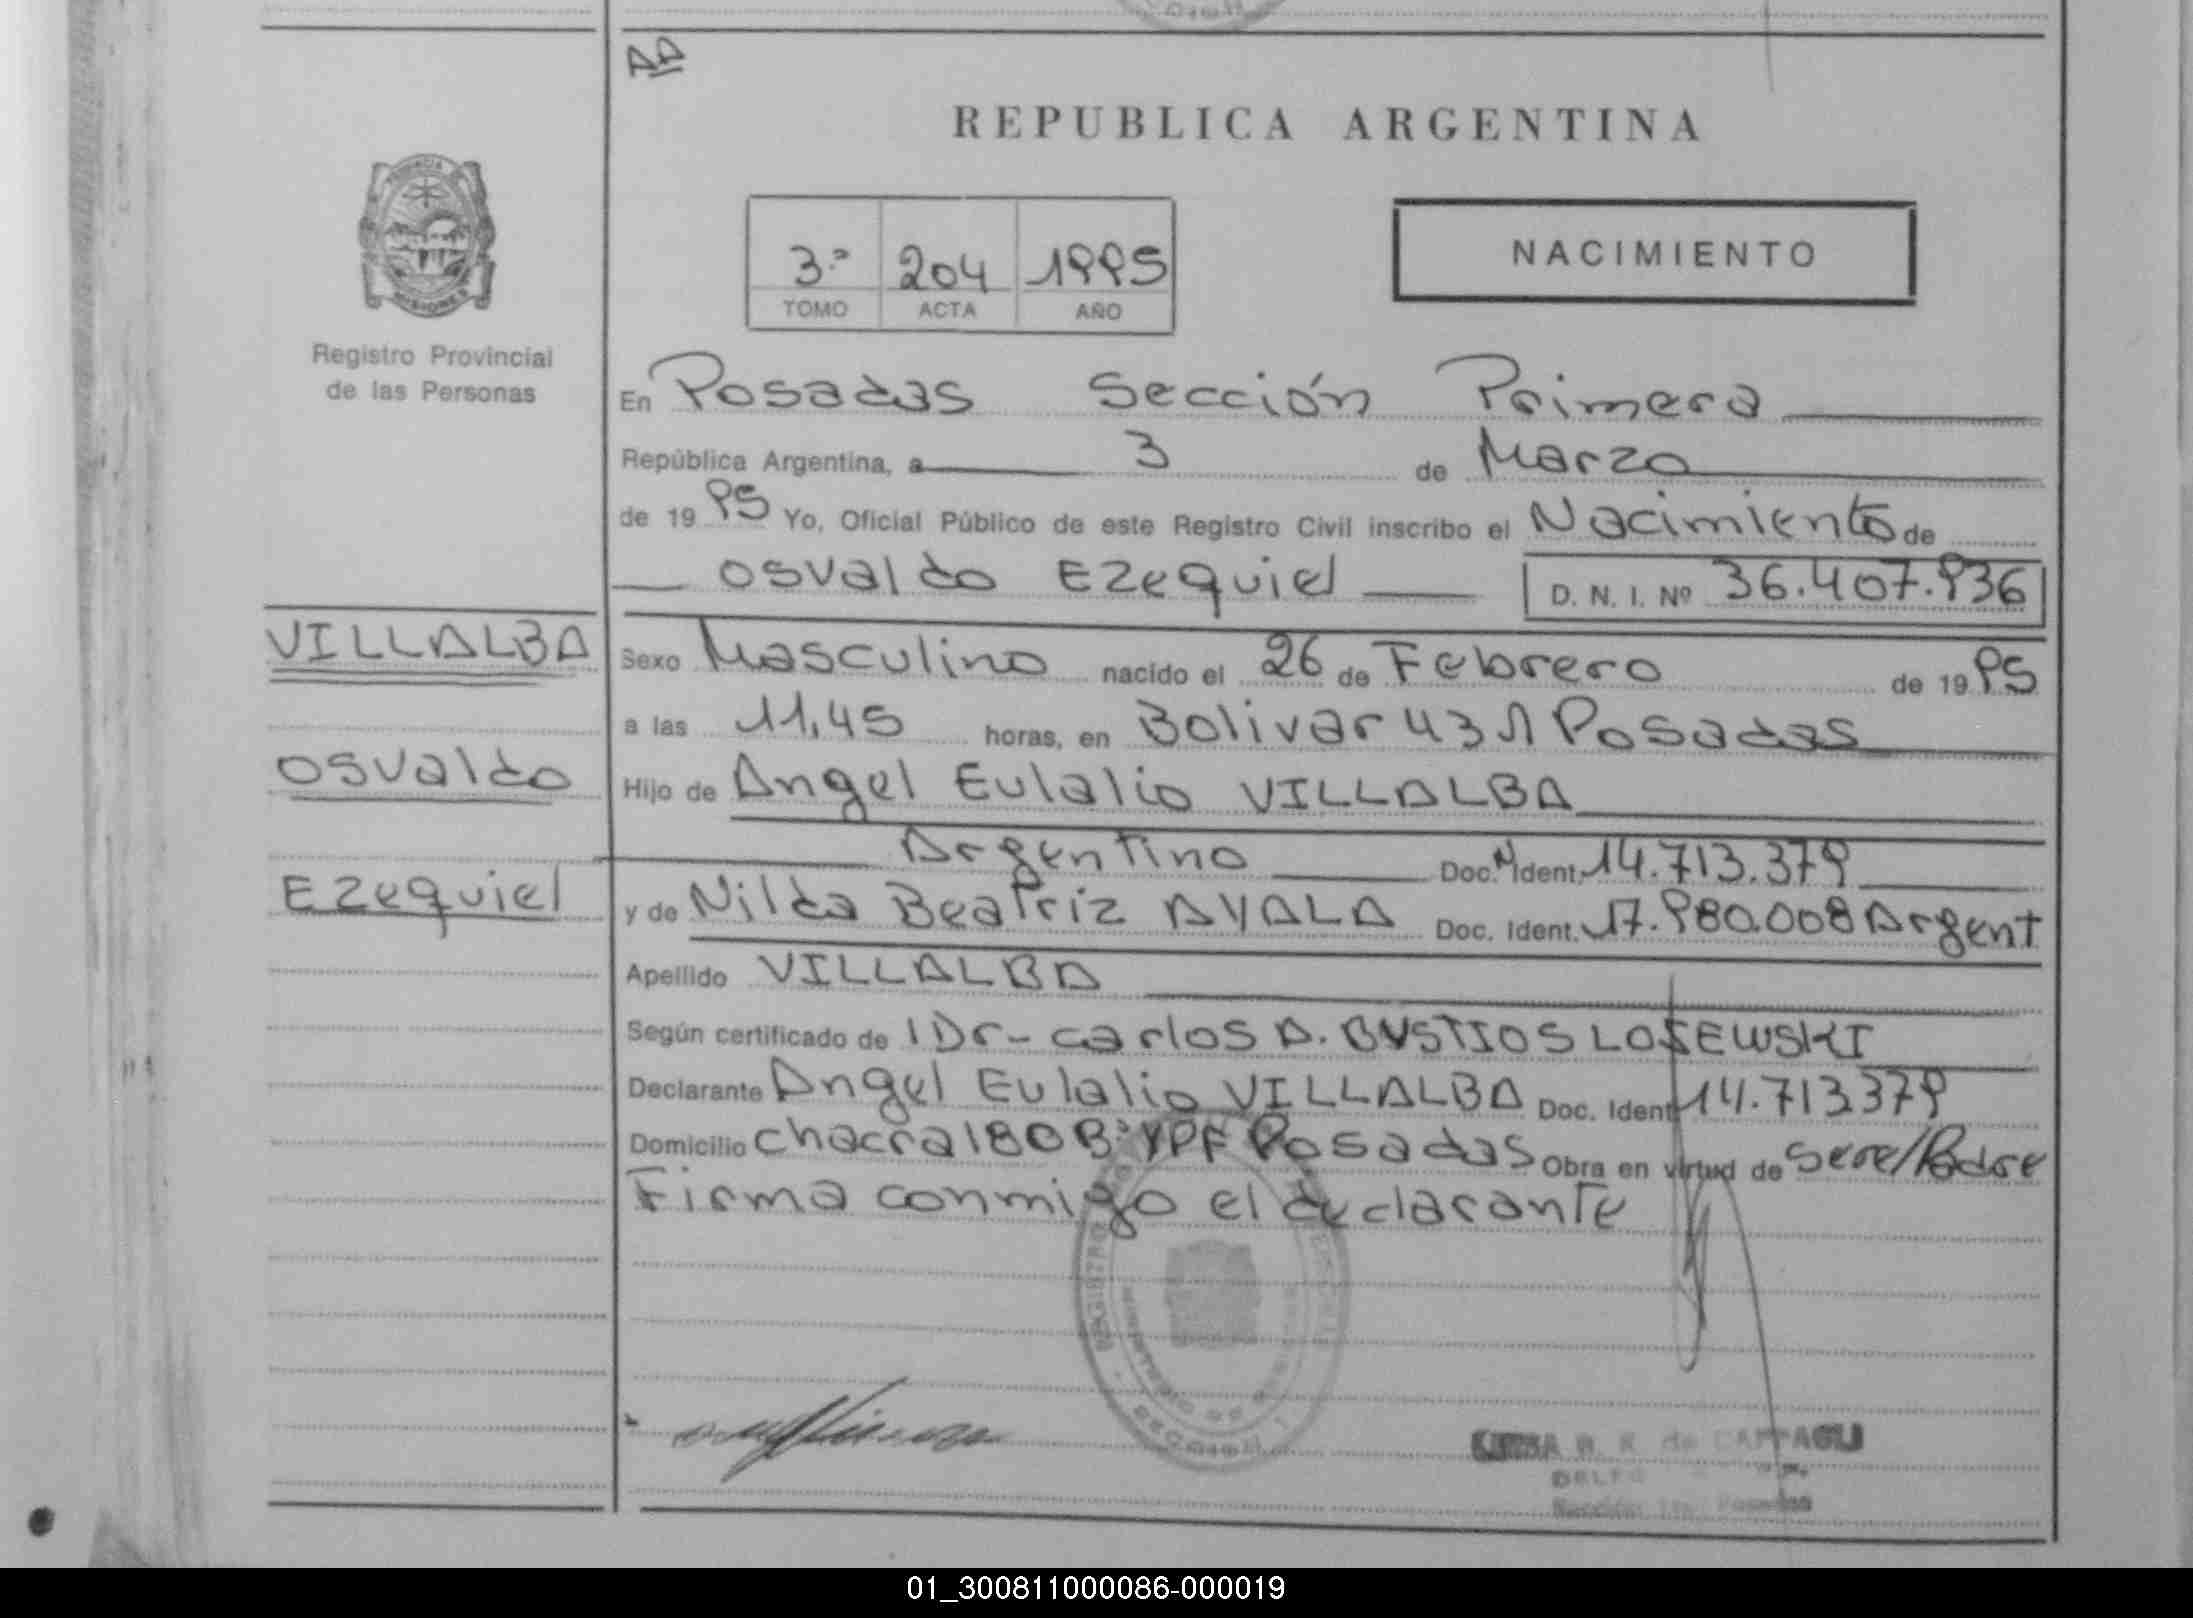 AA
REPUBLICA ARGENTINA
PROVINCIA
MISIONES
3.º 204 1995
TOMO ACTA AÑO
NACIMIENTO
Registro Provincial
de las Personas
En Posadas Sección Primera
República Argentina, a 3 de Marzo
de 19 95 Yo, Oficial Público de este Registro Civil inscribo el Nacimiento de
Osvaldo Ezequiel D. N. I. Nº 36.407.936
VILLALBA
Osvaldo
Ezequiel
Sexo Masculino nacido el 26 de Febrero de 19 95
a las 11,45 horas, en Bolivar 431 Posadas
Hijo de Angel Eulalio VILLALBA
Argentino Doc. N Ident. 14.713.379
y de Nilda Beatriz AYALA Doc. Ident. 17.980.008 Argent
Apellido VILLALBA
Según certificado de Dr- Carlos A. BUSTIOS LOSEWSKI
Declarante Angel Eulalio VILLALBA Doc. Ident 14.713379
Domicilio chacra 180 Bº YPF Posadas Obra en virtud de Sere/Padre
Firma conmigo el declarante
REGISTRO
MINISTERIO DE
SECCION 1
R. de CAPPAGLI
Sección 1ra. Posadas
01_300811000086-000019